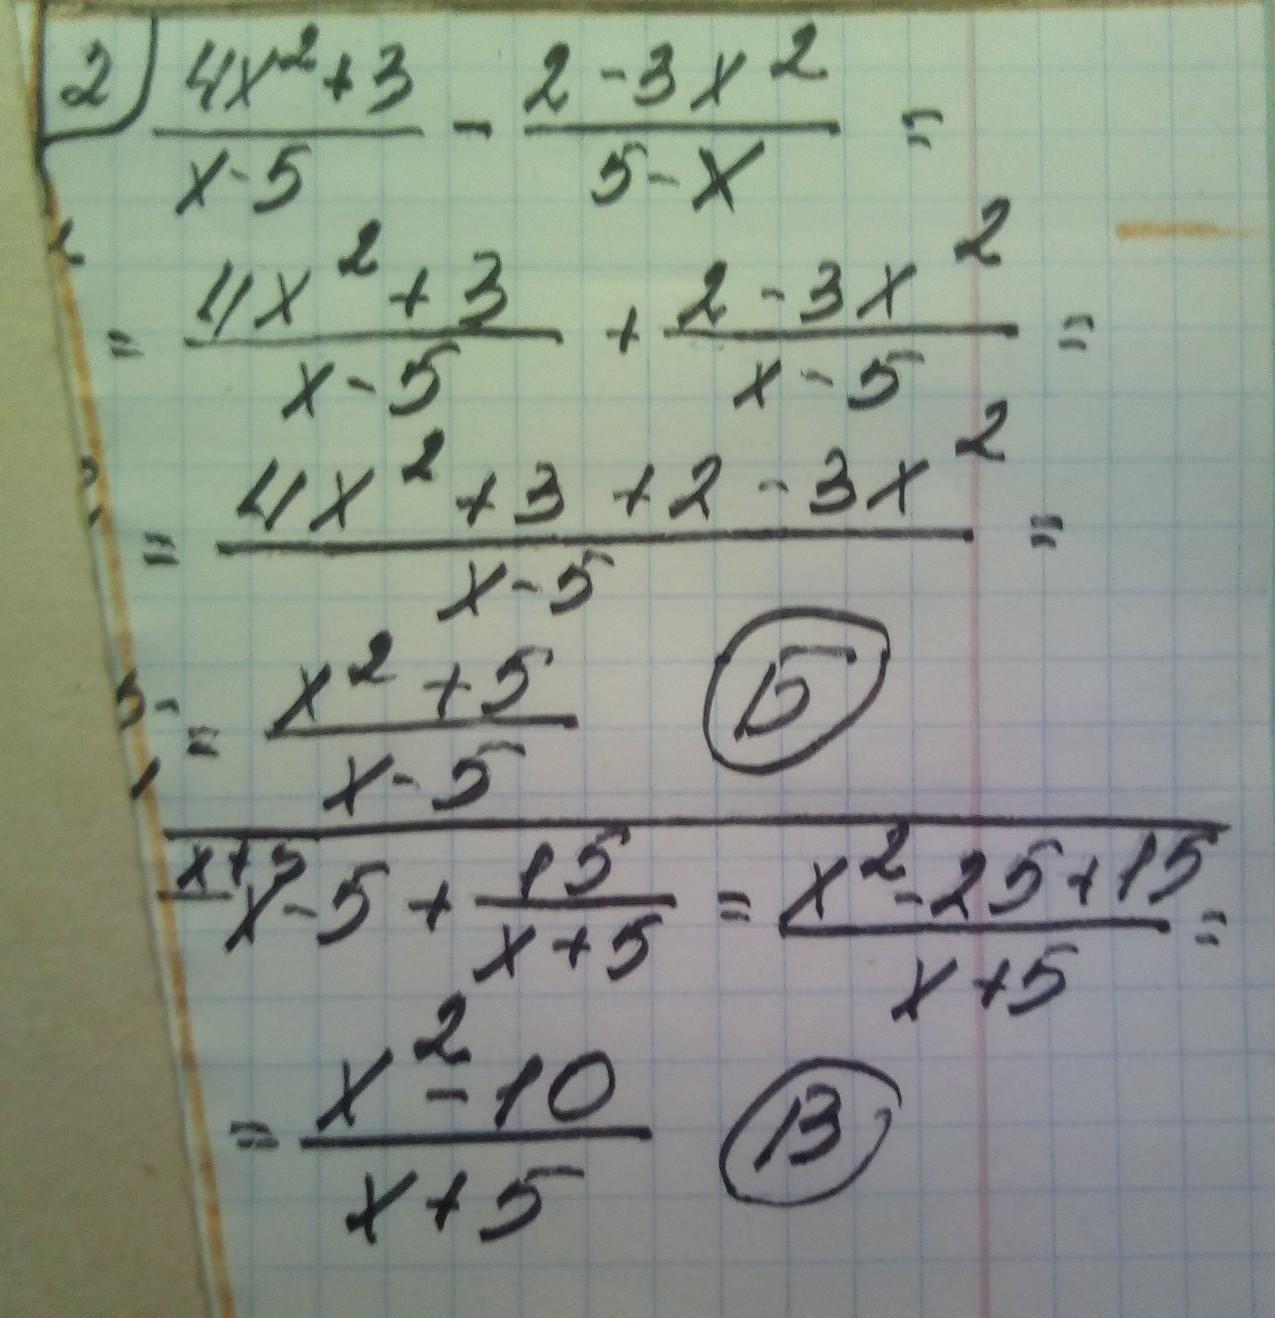 2) (4x²+3)/(x-5) - (2-3x²)/(5-x) =
= (4x²+3)/(x-5) + (2-3x²)/(x-5) =
= (4x²+3+2-3x²)/(x-5) =
= (x²+5)/(x-5) Б
x+5 x-5 + 15/(x+5) = (x²-25+15)/(x+5) =
= (x²-10)/(x+5) В